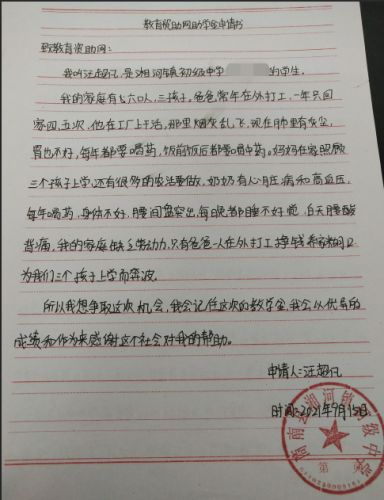 教育资助网助学金申请书
致教育资助网：
我叫汪超凡，是湘河镇初级中学的学生。
我的家庭有六口人，三孩子。爸爸常年在外打工，一年只回
家四、五次，他在工厂上干活，那里烟灰乱飞，现在肺里有灰尘，
胃也不好，每年都要喝药，饭前饭后都要喝药。妈妈在家照顾
三个孩子上学，还有很多的农活要做，奶奶有心脏病和高血压，
每年喝药，身体不好，腰间盘突出，每晚都睡不好觉，白天腰酸
背痛，我的家庭缺乏劳动力，只有爸爸一人在外打工挣钱养家糊口
为我们三个孩子上学而奔波。
所以我想争取这次机会，我会记住这次的救学金，我会以优异的
成绩和作为来感谢这个社会对我的帮助。
申请人：汪超凡
时间：2021年9月15日
商南县湘河镇初级中学